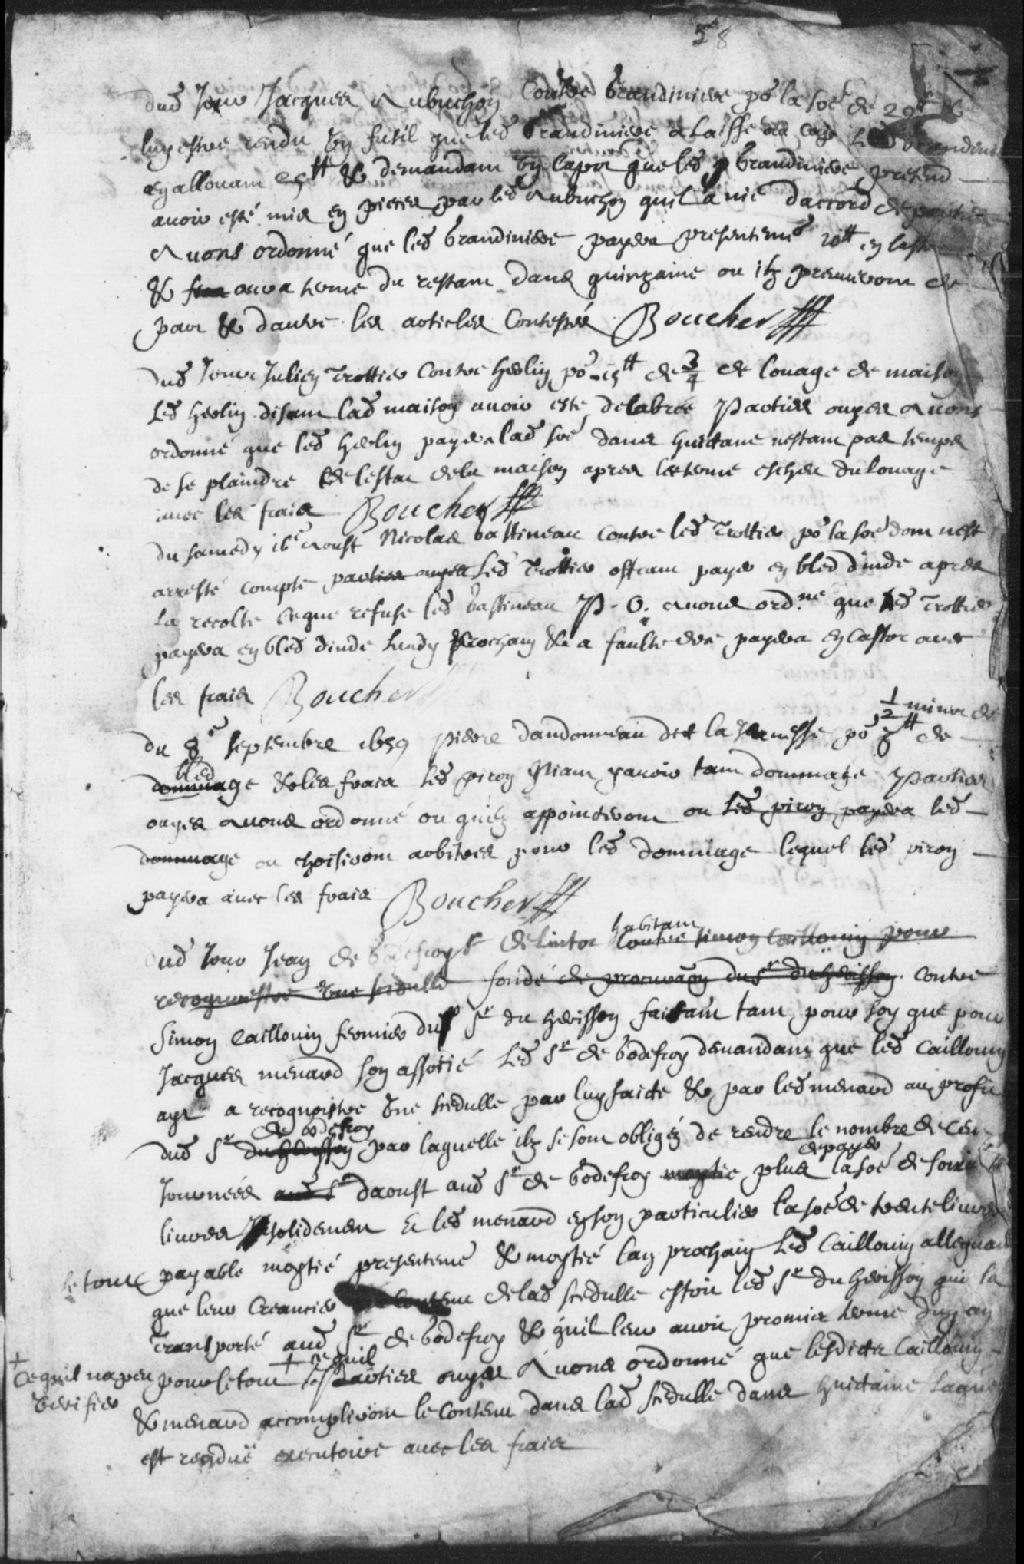 58
dud Jour Jacques Aubuchon Contre brandiniere po.r la so.e de 29.lt
luy estre rendu un fusil que led brandiniere a laissé
en allouant 25.lt & demandant un Capot que led brandiniere pretend
avoir esté mis en pieces par led Aubuchon quil a nié daccord de parties
Avons ordonné que led brandiniere payera presentement 20.lt en Castor
& aura terme du restant dans quinzaine ou ilz preuveront de
part & dautre les articles Contestés Boucher
Dud Jour Julien Trottier Contre heslin po.r 15.lt de 3/4 de louage de maison
Led heslin disant lad maison avoir esté delabrée Parties ouyes Avons
ordonné que led heslin payera lad so.e dans huictaine nestant pas temps
de se plaindre de lestat de la maison apres le terme escheu du louage
avec les frais Boucher
du samedy 16.e Aoust Nicolas Gastineau contre led Trottier po.r la so.e dont nest
arresté compte parties ouyes Led Trottier offrant payer en bled dinde apres
la recolte Ceque refuse led Gastineau P. O. Avons ord.né que led Trottier
payera en bled dinde lundy prochain & a faulte de ce payera en Castor avec
les frais Boucher
1/2 minot de
du 8.e septembre 1659 Pierre dandonneau dit la Jeunesse po.r 6.lt de
bled
dommage & les frais Led piron Niant y avoir tant dommage Parties
ouyes Avons ordonné ou quilz appointeront ou Led piron payera led
dommage ou choisiront arbitres pour led dommage lequel led piron
payera avec les frais Boucher
habitant
dud Jour Jean de Godefroy s.r de Lintot Contre Simon Caillouin pour
recognoistre une scedulle fondé de procura.on du s.r du herisson Contre
Simon Caillouin fermier du S.r du herisson faisant tant pour soy que pour
Jacques menard son assotié Led S.r de Godefroy demandant que led Caillouin
ayt a recognoistre une scedulle par luy faicte & par led menard au profit
de Godefroy
dud S.r du herisson par laquelle ilz se sont obligéz de rendre le nombre de Cent
de payer
Journées aud S.r daoust aud S.r de Godefroy moytie plus la so.e de
livres solidement Et led menard en son particulier la so.e de trente livres
le tout payable moytié presentement & moytié lan prochain Led Caillouin alleguant
que leur Creancier de lad scedulle estoit led S.r du herisson qui la
transporté aud S.r de Godefroy & quil leur avoit promis terme dun an
+ Ce quil na peu verifier
pour le tout + Parties ouyes Avons ordonné que lesdits Caillouin
& menard accompliront le contenu dans lad scedulle dans huictaine Laquelle
est rendüe executoire avec les frais